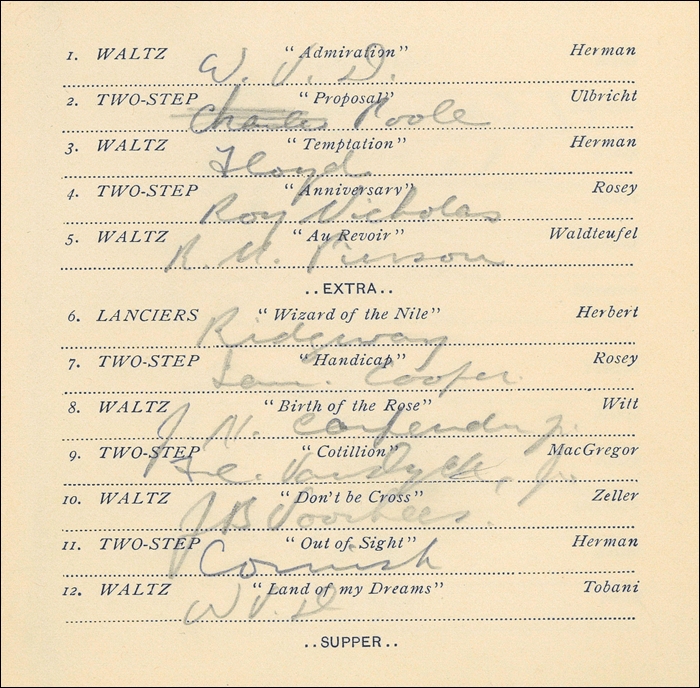 1. WALTZ "Admiration" Herman
W. V. D.
2. TWO-STEP "Proposal" Ulbricht
Charles Poole
3. WALTZ "Temptation" Herman
Floyd
4. TWO-STEP "Anniversary" Rosey
Roy Nicholas
5. WALTZ "Au Revoir" Waldteufel
R. M. Pierson
..EXTRA..
6. LANCIERS "Wizard of the Nile" Herbert
Ridgway
7. TWO-STEP "Handicap" Rosey
Sam. Cooper.
8. WALTZ "Birth of the Rose" Witt
J. N. Carpender Jr.
9. TWO-STEP "Cotillion" MacGregor
VanDyck, Jr.
10. WALTZ "Don't be Cross" Zeller
J B Voorhees.
11. TWO-STEP "Out of Sight" Herman
Cornish
12. WALTZ "Land of my Dreams" Tobani
W V. D
..SUPPER..